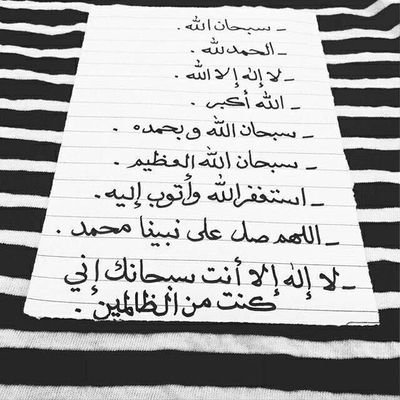 _ سبحان الله .
_ الحمدلله .
_ لا إله إلا الله .
_ الله أكبر .
_ سبحان الله و بحمده .
_ سبحان الله العظيم .
_ استغفر الله وأتوب إليه .
_ اللهم صل على نبينا محمد .
_ لا إله إلا أنت سبحانك إني
كنت من الظالمين .